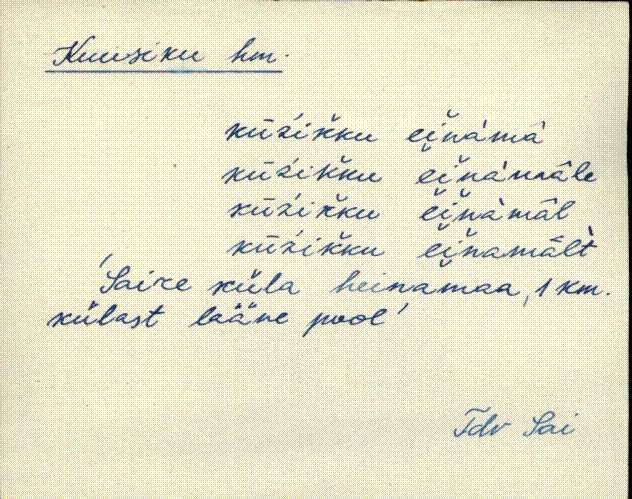 Kuusiku hm.
kūźikku ei̯nämä
kūźikku ei̯nämäle
kūźikku ei̯nämäl
kūźikku ei̯namält
'Saire küla heinamaa, 1 km.
külast lääne pool'
Tdv Sai